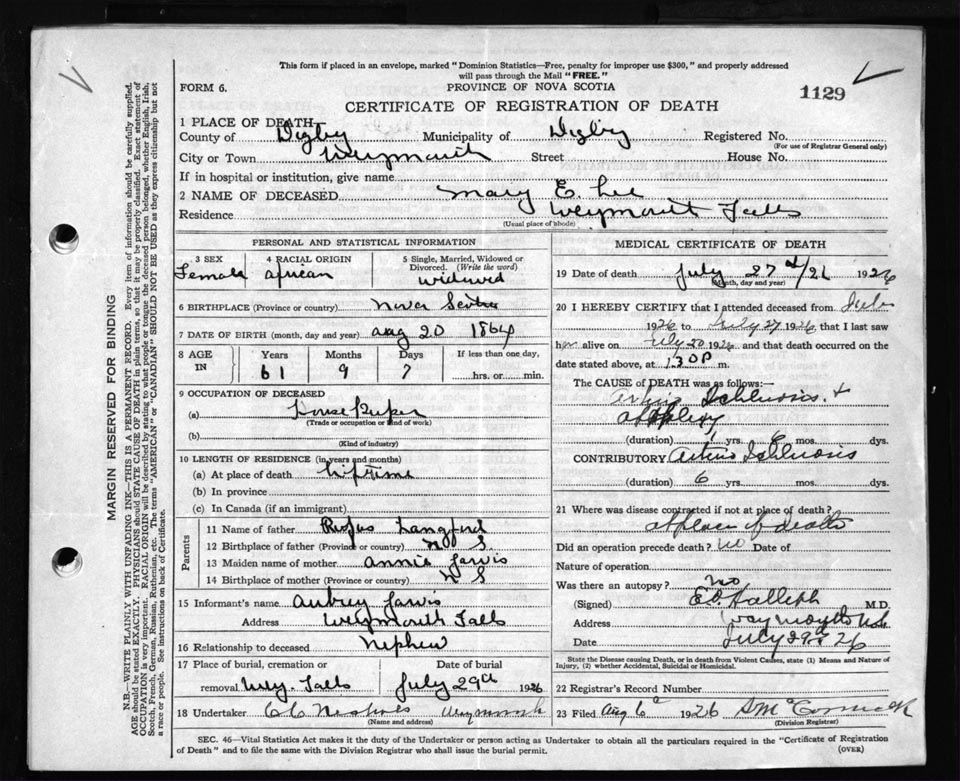 This form if placed in an envelope, marked "Dominion Statistics—Free, penalty for improper use $300," and properly addressed
will pass through the Mail "FREE."
FORM 6.
PROVINCE OF NOVA SCOTIA
1129
CERTIFICATE OF REGISTRATION OF DEATH
1 PLACE OF DEATH
County of Digby Municipality of Digby Registered No.
(For use of Registrar General only)
City or Town Weymouth Street House No.
If in hospital or institution, give name
2 NAME OF DECEASED Mary E. Lee
Residence Weymouth Falls
(Usual place of abode)
PERSONAL AND STATISTICAL INFORMATION
3 SEX
Female
4 RACIAL ORIGIN
African
5 Single, Married, Widowed or
Divorced. (Write the word)
widowed
6 BIRTHPLACE (Province or country) Nova Scotia
7 DATE OF BIRTH (month, day and year) Aug 20 1864
8 AGE
IN
Years Months Days If less than one day,
61 9 7 hrs. or min.
9 OCCUPATION OF DECEASED
(a) House Keeper
(Trade or occupation or kind of work)
(b)
(Kind of industry)
10 LENGTH OF RESIDENCE (in years and months)
(a) At place of death Lifetime
(b) In province
(c) In Canada (if an immigrant)
Parents
11 Name of father Rufus Langford
12 Birthplace of father (Province or country) N S.
13 Maiden name of mother Annie Jarvis
14 Birthplace of mother (Province or country) N S
15 Informant's name Aubrey Jarvis
Address Weymouth Falls
16 Relationship to deceased Nephew
17 Place of burial, cremation or Date of burial
removal Wey. Falls July 29th 1926
18 Undertaker C C Nichols Weymouth
(Name and address)
MEDICAL CERTIFICATE OF DEATH
19 Date of death July 27 1926
(Month, day and year)
20 I HEREBY CERTIFY that I attended deceased from
1926 to July 27 1926, that I last saw
her alive on July 20 1926 and that death occurred on the
date stated above, at 1 30 P m.
The CAUSE OF DEATH was as follows:—
(duration) yrs. 6 mos. dys.
CONTRIBUTORY
(duration) 6 yrs. mos. dys.
21 Where was disease contracted if not at place of death?
at place of death
Did an operation precede death? no Date of
Nature of operation
Was there an autopsy? no
(Signed) M.D.
Address N.S.
Date July 29 26
State the Disease causing Death, or in death from Violent Causes, state (1) Means and Nature of
Injury, (2) whether Accidental, Suicidal or Homicidal.
22 Registrar's Record Number
23 Filed Aug 6 1926
(Division Registrar)
SEC. 46—Vital Statistics Act makes it the duty of the Undertaker or person acting as Undertaker to obtain all the particulars required in the "Certificate of Registration
of Death" and to file the same with the Division Registrar who shall issue the burial permit.
(OVER)
MARGIN RESERVED FOR BINDING
N.B.—WRITE PLAINLY WITH UNFADING INK—THIS IS A PERMANENT RECORD. Every item of information should be carefully supplied.
AGE should be stated EXACTLY. PHYSICIANS should STATE CAUSE OF DEATH in plain terms, so that it may be properly classified. Exact statement of
OCCUPATION is very important. RACIAL ORIGIN will be described by stating to what people or tongue the deceased person belonged, whether English, Irish,
Scotch, French, German, Russian, Ruthenian, etc. The terms "AMERICAN" or "CANADIAN" SHOULD NOT BE USED as they express citizenship but not
a race or people. See instructions on back of Certificate.